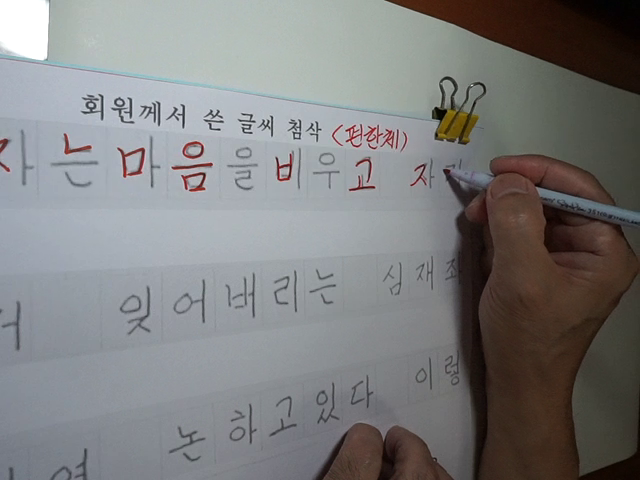 회원께서 쓴 글씨 첨삭 <편한체>
자는 마음을 비우고 자
잊어버리는 심재좌
논하고있다 이렇